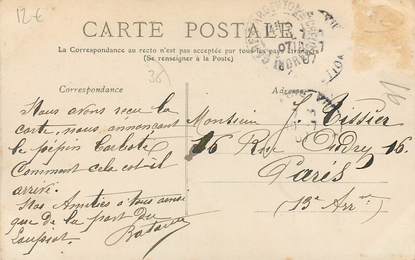 12€
CARTE POSTALE
La Correspondance au recto n'est pas acceptée par tous les pays
(Se renseigner à la Poste)
36
Correspondance
Nous avons reçu la
carte, nous annonçant
le pépin
Comment cela est-il
arrivé.
Nos Amitiés à tous ainsi
que de la part du
Adresse
Monsieur J. Tissier
16 Rue Oudry 16
Paris
(13e Arrt)